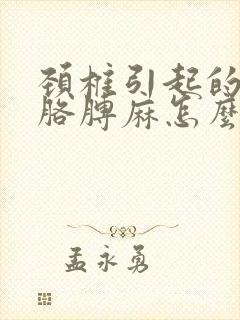 頚椎引起的
胳膊麻怎麼
孟永勇